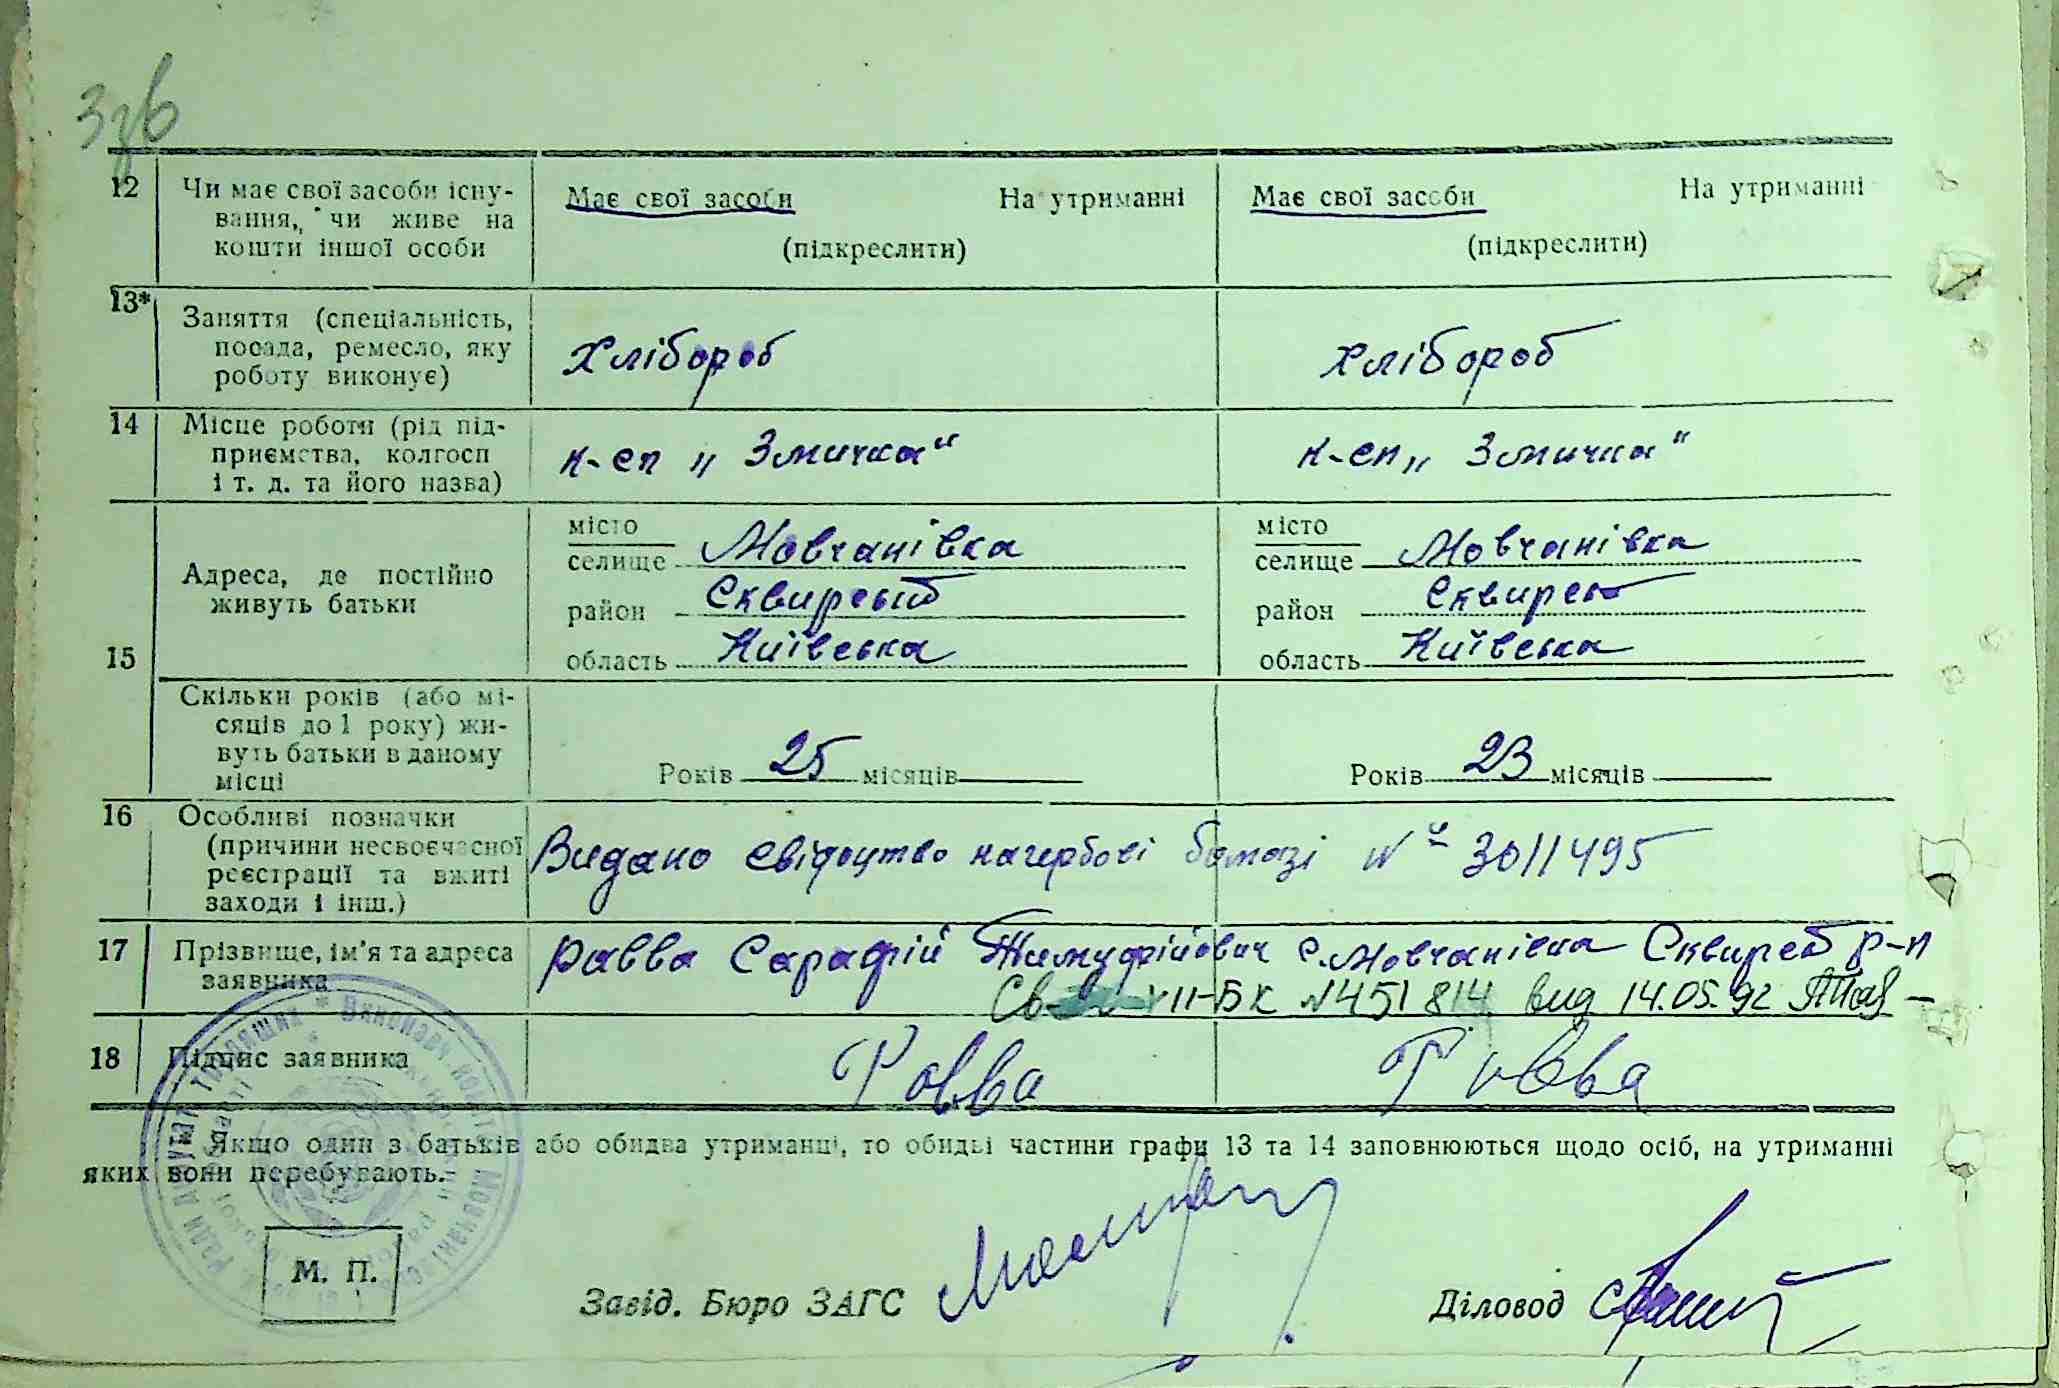 12 Чи має свої засоби існу-
вання, чи живе на
кошти іншої особи
Має свої засоби На утриманні
(підкреслити)
Має свої засоби На утриманні
(підкреслити)
13* Заняття (спеціальність,
посада, ремесло, яку
роботу виконує)
Хлібороб
Хлібороб
14 Місце роботи (рід під-
приємства, колгосп
і т. д. та його назва)
к-сп „Змичка“
к-сп „Змичка“
15 Адреса, де постійно
живуть батьки
місто
селище Мовчанівка
район Сквирський
область Київська
місто
селище Мовчанівка
район Сквирськ
область Київська
Скільки років (або мі-
сяців до 1 року) жи-
вуть батьки в даному
місці
Років 25 місяців
Років 23 місяців
16 Особливі позначки
(причини несвоєчасної
реєстрації та вжиті
заходи і інш.)
Видано свідоцтво на гербові № 3011495
17 Прізвище, ім'я та адреса
заявника
Равва Сарафій Тимуфійович с. Мовчанівка Сквирськ р-н
Св VII-БК №451814 вид 14.05.92
18 Підпис заявника
Равва
Равва
Якщо один з батьків або обидва утриманці, то обидві частини графи 13 та 14 заповнюються щодо осіб, на утриманні
яких вони перебувають.
М. П.
Завід. Бюро ЗАГС
Діловод